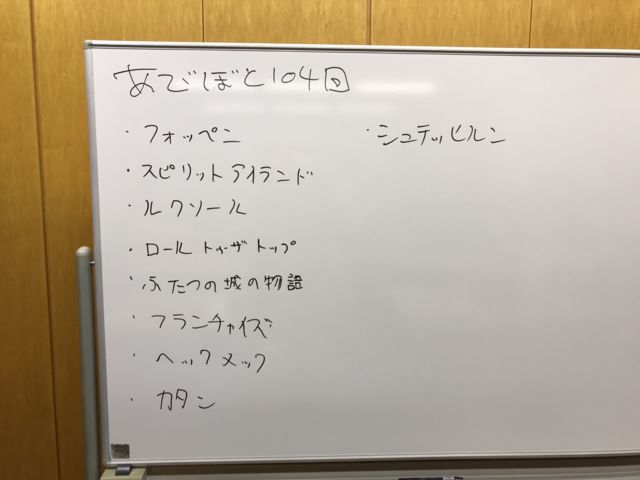 あでぼと104回
・フォッペン
・スピリットアイランド
・ルクソール
・ロールトゥザトップ
・ふたつの城の物語
・フランチャイズ
・ヘックメック
・カタン
・シュテッヒルン